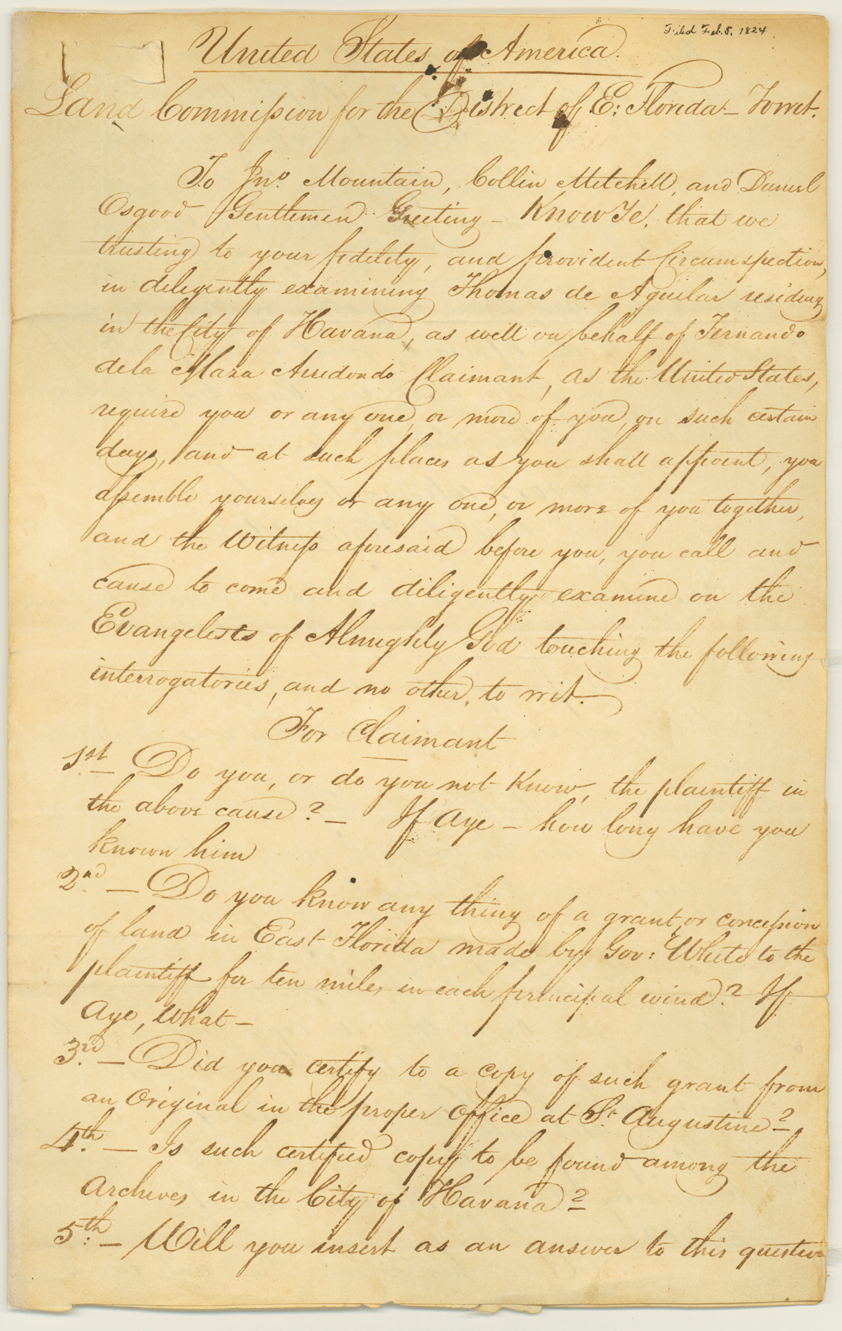 Filed Feb. 5. 1824
United States of America.
Land Commission for the District of E: Florida - Territ.
To Jno. Mountain, Collin Mitchell, and Daniel
Osgood Gentlemen Greeting - Know Ye, that we
trusting to your fidelity, and provident Circumspection,
in delegently examining Thomas de Aguilar residing
in the City of Havana, as well on behalf of Fernando
de la Maza Arredondo Claimant, as the United States,
require you or any one, or more of you, on such certain
days, and at such places as you shall appoint, you
assemble yourselves or any one, or more of you together,
and the Witness aforesaid before you, you call and
cause to come and diligently examine on the
Evangelests of Almughty God touching the following
interrogatories, and no other, to wit.
For Claimant
1st - Do you, or do you not Know, the plaintiff in
the above cause? - If Aye - how long have you
known him
2nd - Do you know any thing of a grant or concession
of land in East Florida made by Gov: White to the
plaintiff for ten miles in each principal wind? If
Aye, What -
3rd. - Did you certify to a copy of such grant from
an Original in the proper office at St Augustine?
4th. - Is such certified copy to be found among the
Archives in the City of Havana?
5th. - Will you insert as an answer to this question